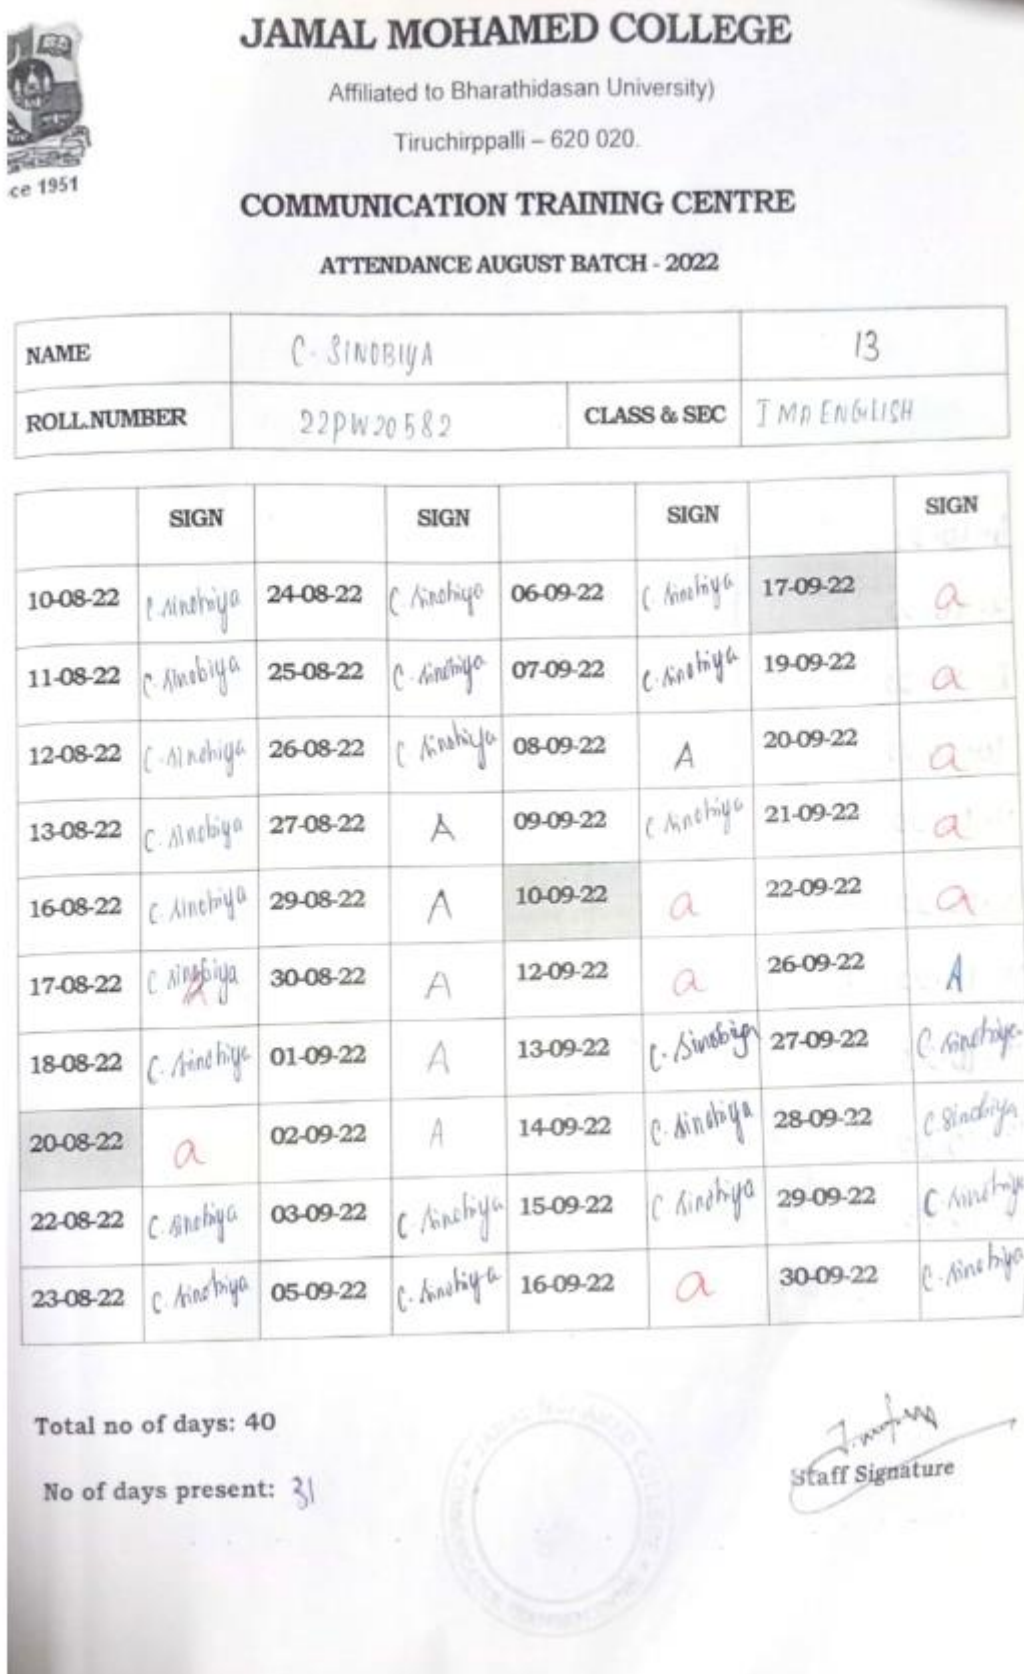 JAMAL MOHAMED COLLEGE
Affiliated to Bharathidasan University)
Tiruchirppalli – 620 020.
ce 1951
COMMUNICATION TRAINING CENTRE
ATTENDANCE AUGUST BATCH - 2022
NAME C. SINOBIYA 13
ROLL.NUMBER 22PW20582 CLASS & SEC I MA ENGLISH
SIGN SIGN SIGN SIGN
10-08-22 C. Sinobiya 24-08-22 C Sinobiya 06-09-22 C Sinobiya 17-09-22 a
11-08-22 C. Sinobiya 25-08-22 C. Sinobiya 07-09-22 C. Sinobiya 19-09-22 a
12-08-22 C. Sinobiya 26-08-22 C Sinobiya 08-09-22 A 20-09-22 a
13-08-22 C. Sinobiya 27-08-22 A 09-09-22 C Sinobiya 21-09-22 a
16-08-22 C. Sinobiya 29-08-22 A 10-09-22 a 22-09-22 a
17-08-22 C Sinobiya 30-08-22 A 12-09-22 a 26-09-22 A
18-08-22 C. Sinobiya 01-09-22 A 13-09-22 C. Sinobiya 27-09-22 C. Sinobiya
20-08-22 a 02-09-22 A 14-09-22 C. Sinobiya 28-09-22 C Sinobiya
22-08-22 C. Sinobiya 03-09-22 C Sinobiya 15-09-22 C Sinobiya 29-09-22 C Sinobiya
23-08-22 C. Sinobiya 05-09-22 C. Sinobiya 16-09-22 a 30-09-22 C. Sinobiya
Total no of days: 40
No of days present: 31
Staff Signature